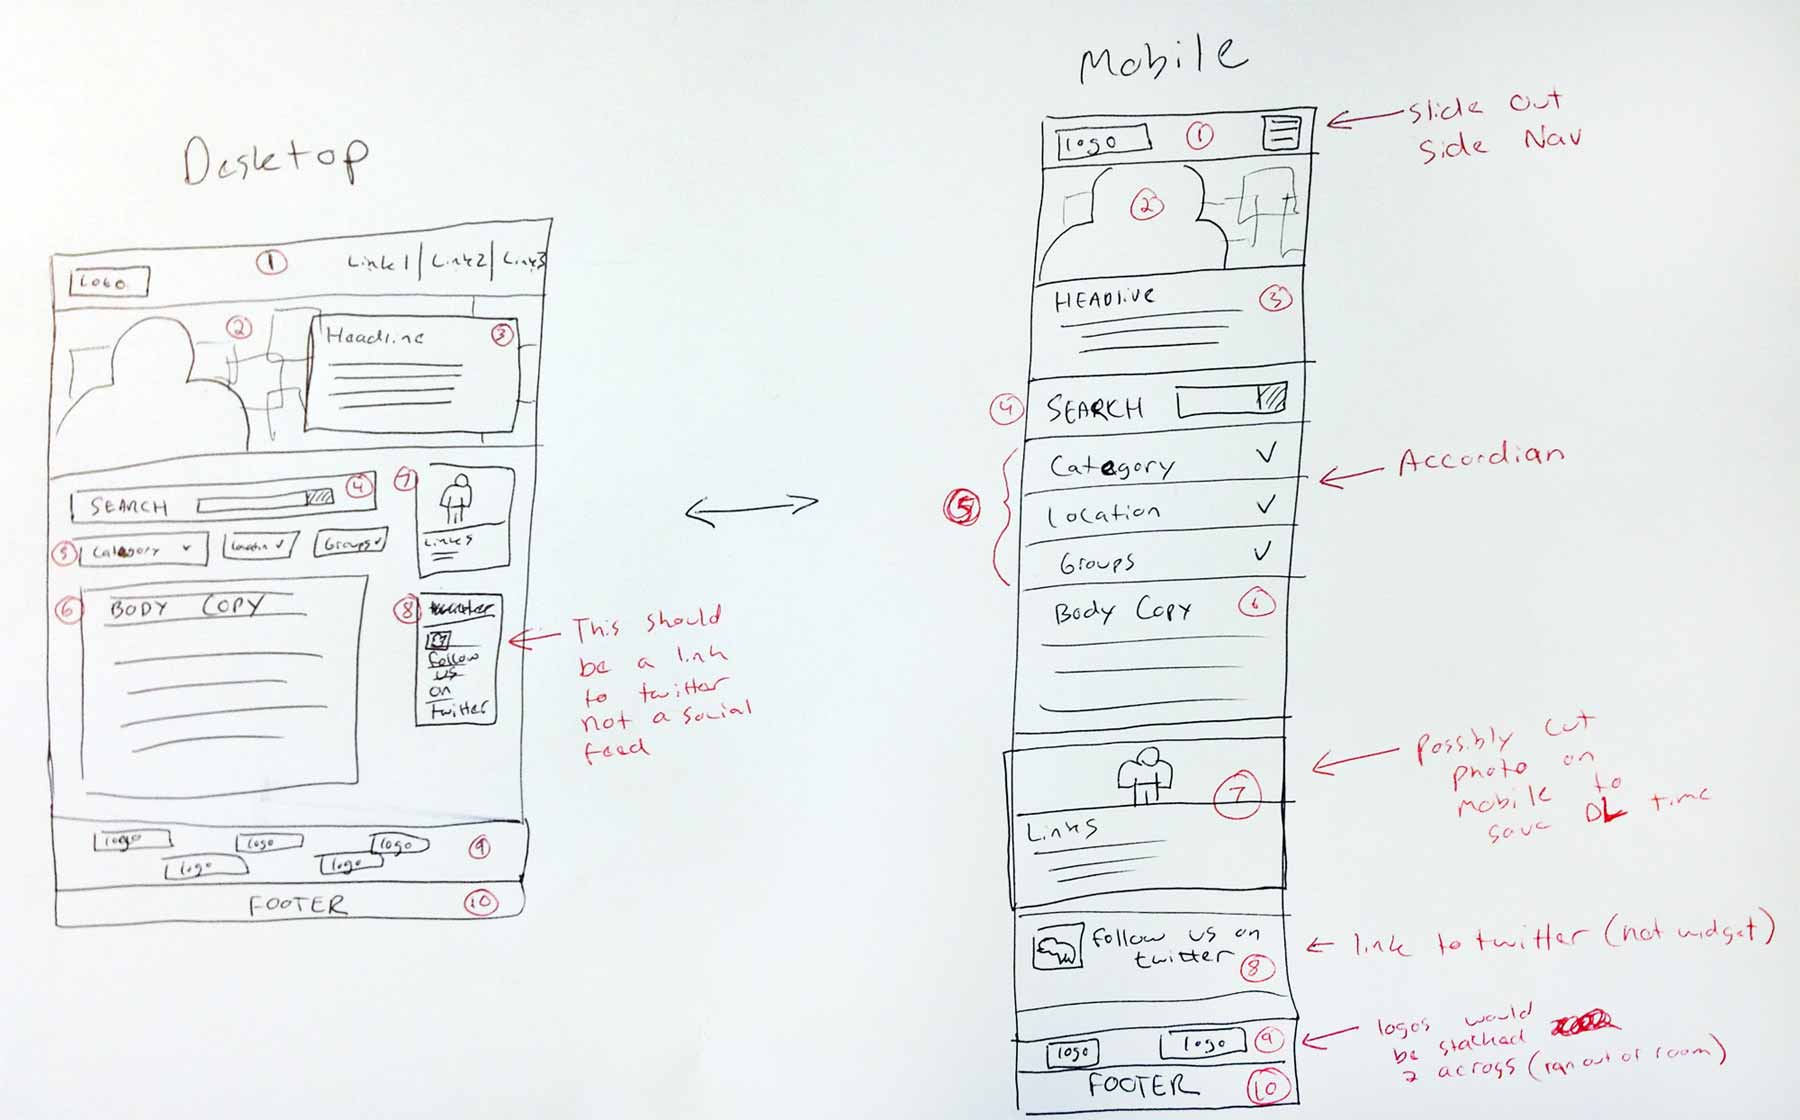 Desktop
Logo
1
Link1 | Link2 | Link3
2
Headline
3
SEARCH
4
5
Category
Groups
6
BODY COPY
7
Links
8
twitter
follow
us
on
twitter
This should
be a link
to twitter
not a social
feed
logo
logo
logo
logo
logo
9
FOOTER
10
Mobile
logo
1
slide out
side Nav
2
HEADlive
3
4
SEARCH
5
Category
Accordian
location
Groups
Body Copy
6
7
Possibly cut
photo on
mobile to
save DL time
Links
follow us on
twitter
8
link to twitter (not widget)
logo
logo
9
logos would
be stacked
2 across (ran out of room)
FOOTER
10